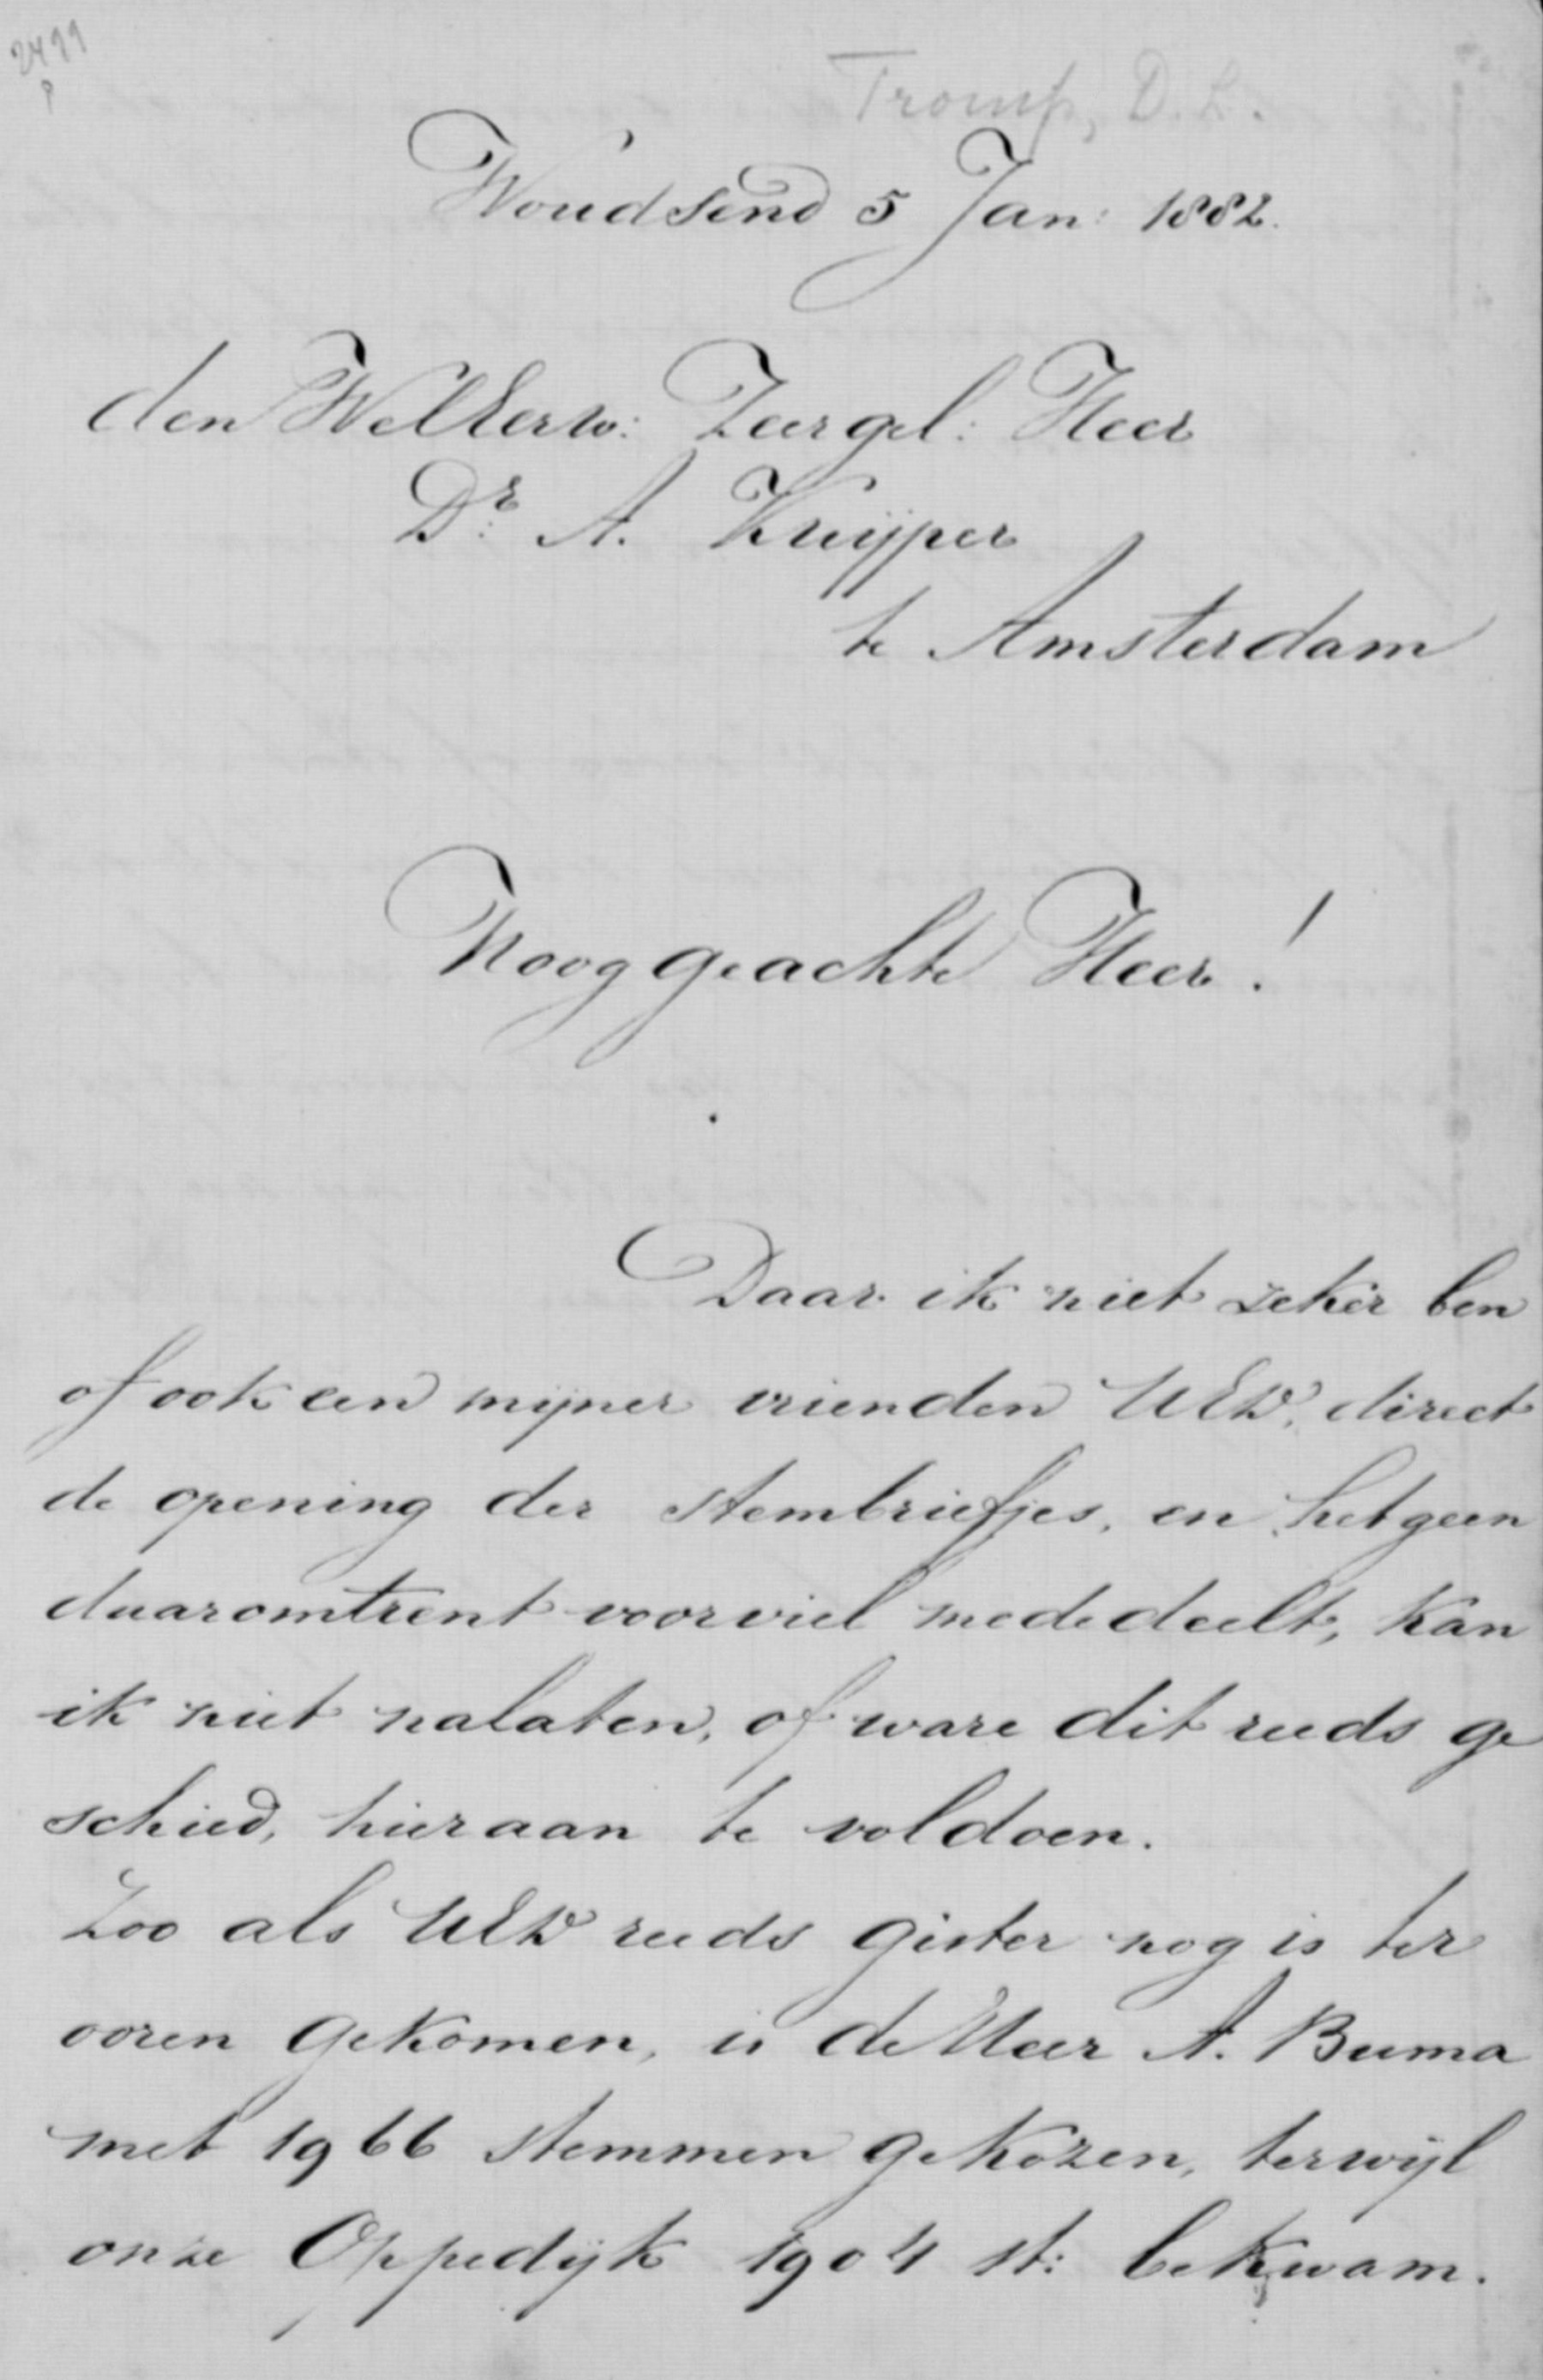 2499
P
Tromp, D. L.
Woudsend 5 Jan: 1882.
den WelEerw: Zeergel: Heer
Dr. A. Kuijper
te Amsterdam
Hooggeachte Heer!
Daar ik niet zeker ben
of ook een mijner vrienden UEW. direct
de opening der stembriefjes, en hetgeen
daaromtrent voorviel mededeelt, kan
ik niet nalaten, of ware dit reeds ge
schied, hieraan te voldoen.
Zoo als UEW reeds gister nog is ter
ooren gekomen, is de Heer A. Buma
met 1966 stemmen gekozen, terwijl
onze Oppedijk 1904 st: bekwam.